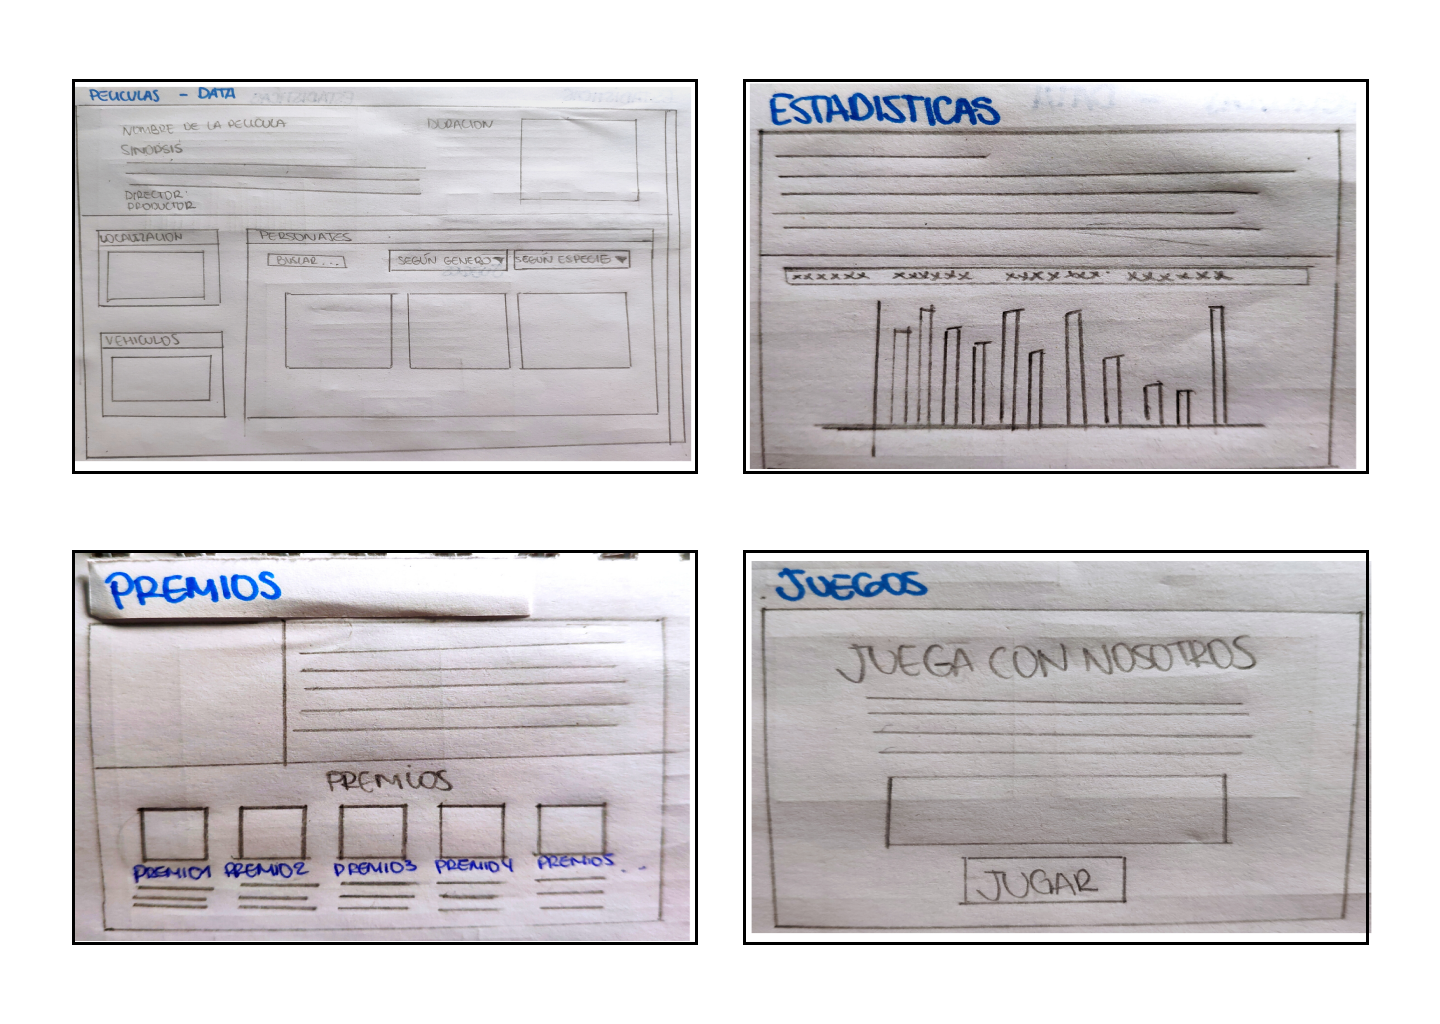 PELICULAS - DATA
NOMBRE DE LA PELICULA
DURACION
SINOPSIS
DIRECTOR:
PRODUCTOR
LOCALIZACION
PERSONAJES
BUSCAR...
SEGÚN GENERO
SEGÚN ESPECIE
VEHICULOS
ESTADISTICAS
xxxxxx xxxxxx xxxxxxx xxxxxxx
PREMIOS
PREMIOS
PREMIO1 PREMIO2 PREMIO3 PREMIO4 PREMIO5 ..
JUEGOS
JUEGA CON NOSOTROS
JUGAR